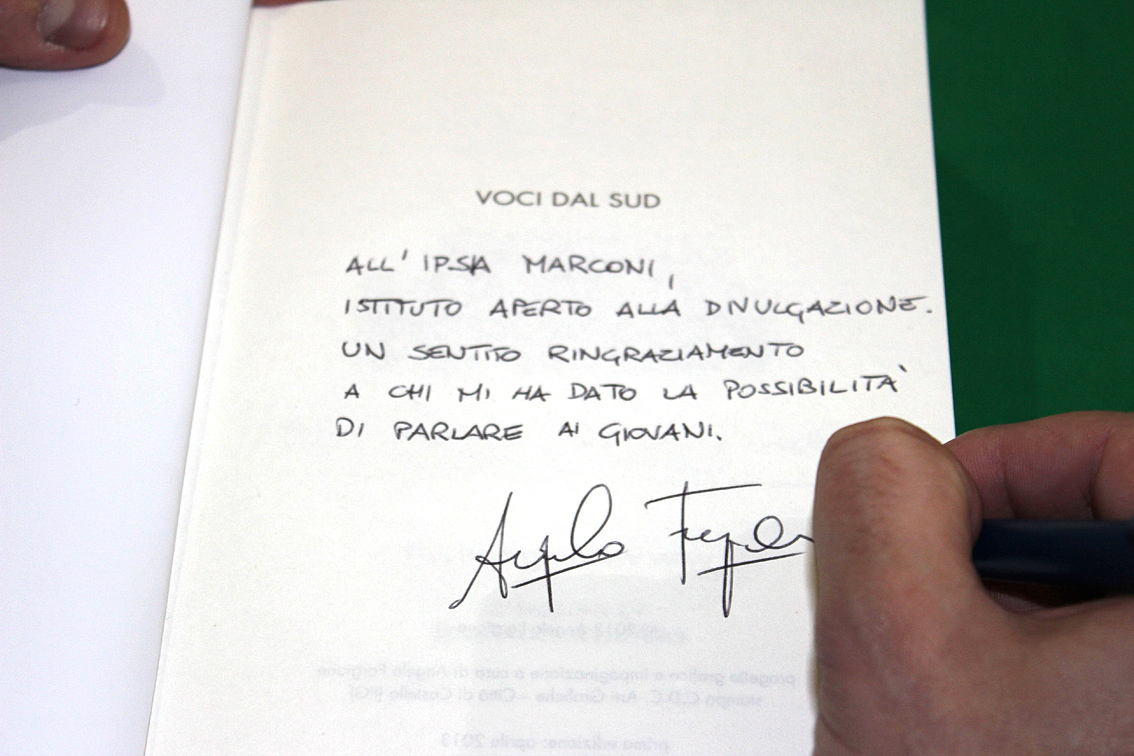 VOCI DAL SUD
ALL' IPSIA MARCONI,
ISTITUTO APERTO ALLA DIVULGAZIONE.
UN SENTITO RINGRAZIAMENTO
A CHI MI HA DATO LA POSSIBILITA'
DI PARLARE AI GIOVANI.
Angelo
progetto grafico e impaginazione a cura di Angelo
stampa C.D.C. Arti Grafiche – Città di Castello (PG)
prima edizione: aprile 2013